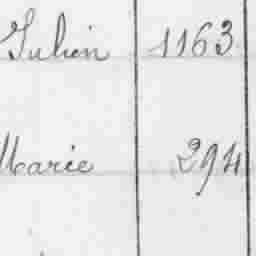 Julien 1163
Marie 294